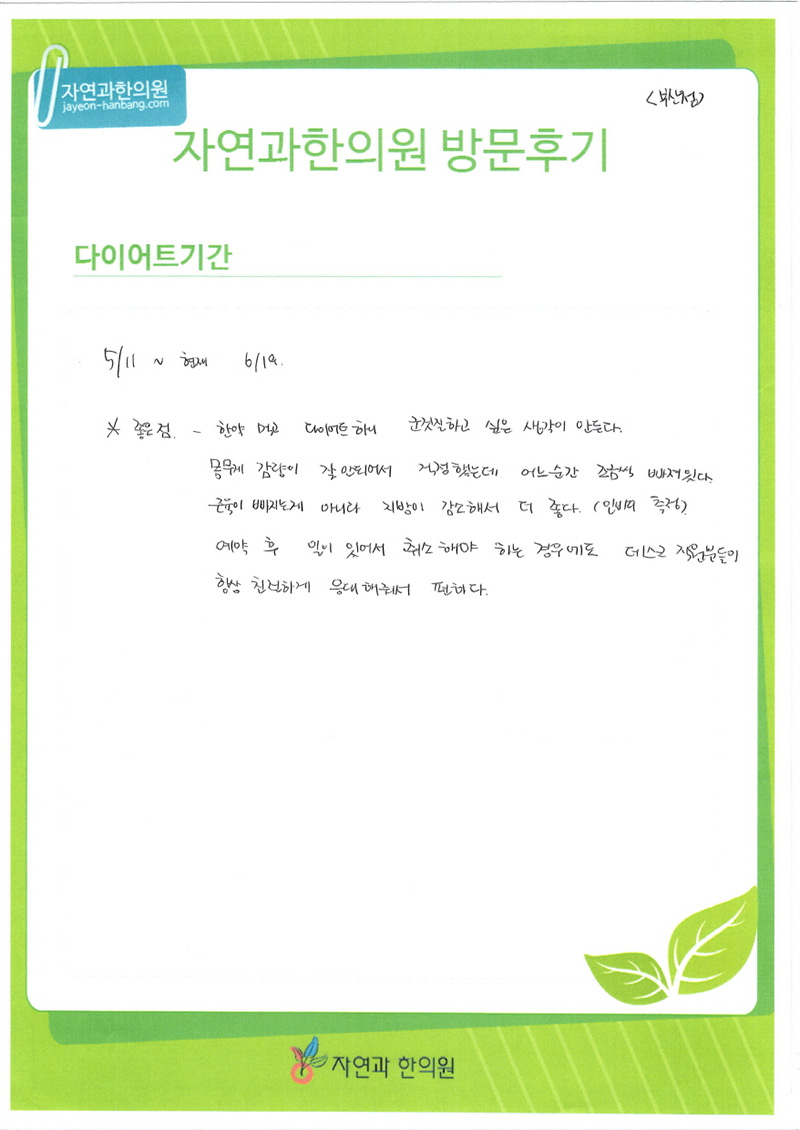 자연과한의원
jayeon-hanbang.com
<부산점>
자연과한의원 방문후기
다이어트기간
5/11 ~ 현재 6/19.
* 좋은점. - 한약 먹고 다이어트하니 군것질하고 싶은 생각이 안든다.
몸무게 감량이 잘 안되어서 걱정했는데 어느순간 조금씩 빠져있다.
근육이 빠지는게 아니라 지방이 감소해서 더 좋다. (인바디 측정)
예약 후 일이 있어서 취소해야 하는 경우에도 데스크 직원분들이
항상 친절하게 응대해줘서 편하다.
자연과 한의원